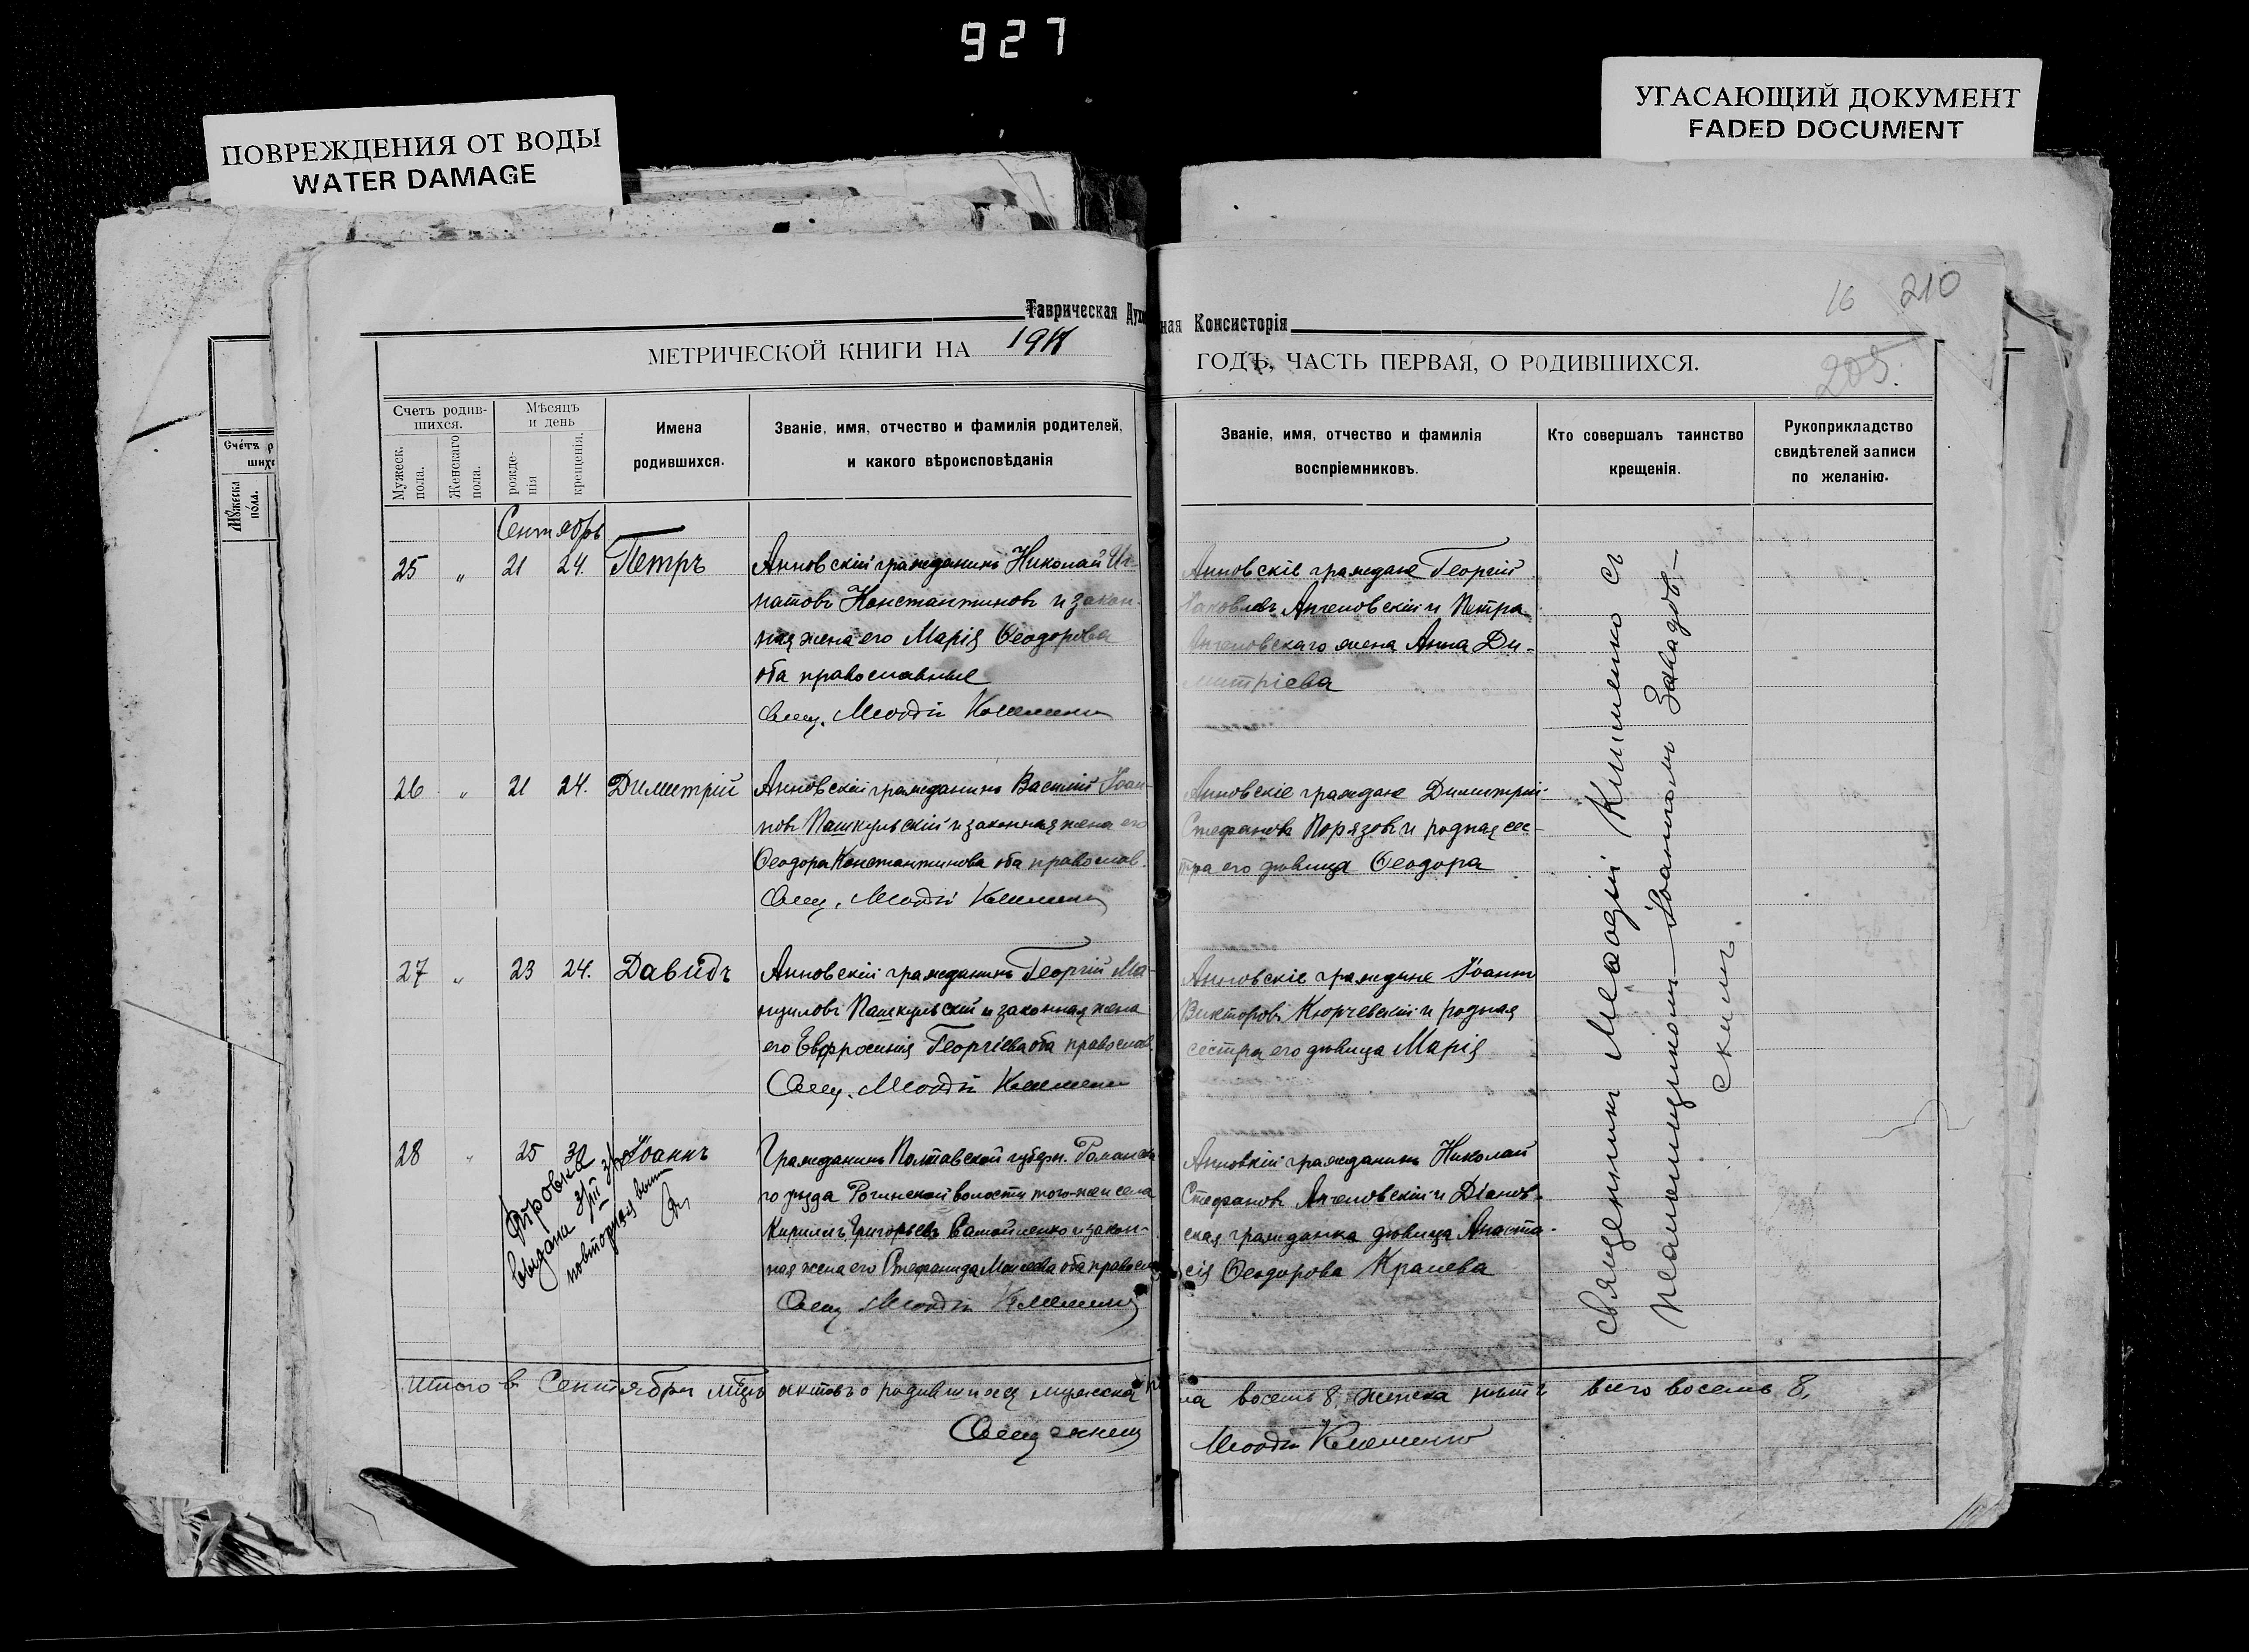 927
ПОВРЕЖДЕНИЯ ОТ ВОДЫ
WATER DAMAGE
УГАСАЮЩИЙ ДОКУМЕНТ
FADED DOCUMENT
16 210
Таврическая Духовная Консисторія
МЕТРИЧЕСКОЙ КНИГИ НА ГОДЪ, ЧАСТЬ ПЕРВАЯ, О РОДИВШИХСЯ.
209.
Счетъ родив-
шихся.
Мужеск.
пола.
Женскаго
пола.
Мѣсяцъ
и день
рожде-
нія
крещенія.
Имена
родившихся.
Званіе, имя, отчество и фамилія родителей,
и какого вѣроисповѣданія
Званіе, имя, отчество и фамилія
воспріемниковъ.
Кто совершалъ таинство
крещенія.
Рукоприкладство
свидѣтелей записи
по желанію.
Сентябрь
25 " 21 24. Петръ
Анновскій гражданинъ Николай Иг-
натовъ Константиновъ и закон-
ная жена его Марія Ѳеодорова
оба православные
Свящ. Меѳодій Клименко
Анновскіе граждане Георгій
Яковлевъ Ангеловскій и Петра
Ангеловскаго жена Анна Ди-
митріева
26 " 21 24. Димитрій
Анновскій гражданинъ Василій Іоан-
новъ Пашкульскій и законная жена его
Ѳеодора Константинова оба православ.
Свящ. Меѳодій Клименко
Анновскіе граждане Димитрій
Стефановъ Порязовъ и родная сес-
тра его дѣвица Ѳеодора
27 " 23 24. Давидъ
Анновскій гражданинъ Георгій Ма-
нуиловъ Пашкульскій и законная жена
его Евфросинія Георгіева оба православ.
Свящ. Меѳодій Клименко
Анновскіе граждане Іоаннъ
Викторовъ Кюрчевскій и родная
сестра его дѣвица Марія
28 " 25 30 Іоаннъ
выдана
повторная вып
Гражданинъ Полтавской губерн. Роменска
го уѣзда Рогинской волости того-же села
Кириллъ Григорьевъ Самойленко и закон-
ная жена его Стефанида Моисеева оба правосла
Свящ. Меѳодій Клименко
Анновскій гражданинъ Николай
Стефановъ Ангеловскій и Діанов-
ская гражданка дѣвица Анаста-
сія Ѳеодорова Кралева
Священникъ Меѳодій Клименко съ
псаломщикомъ Іоанномъ Завадов-
скимъ.
Итого в Сентябрѣ мѣцѣ актовъ о родившихся мужска пола восемь 8, женска нѣтъ всего восемь 8,
Священникъ Меѳодій Клименко